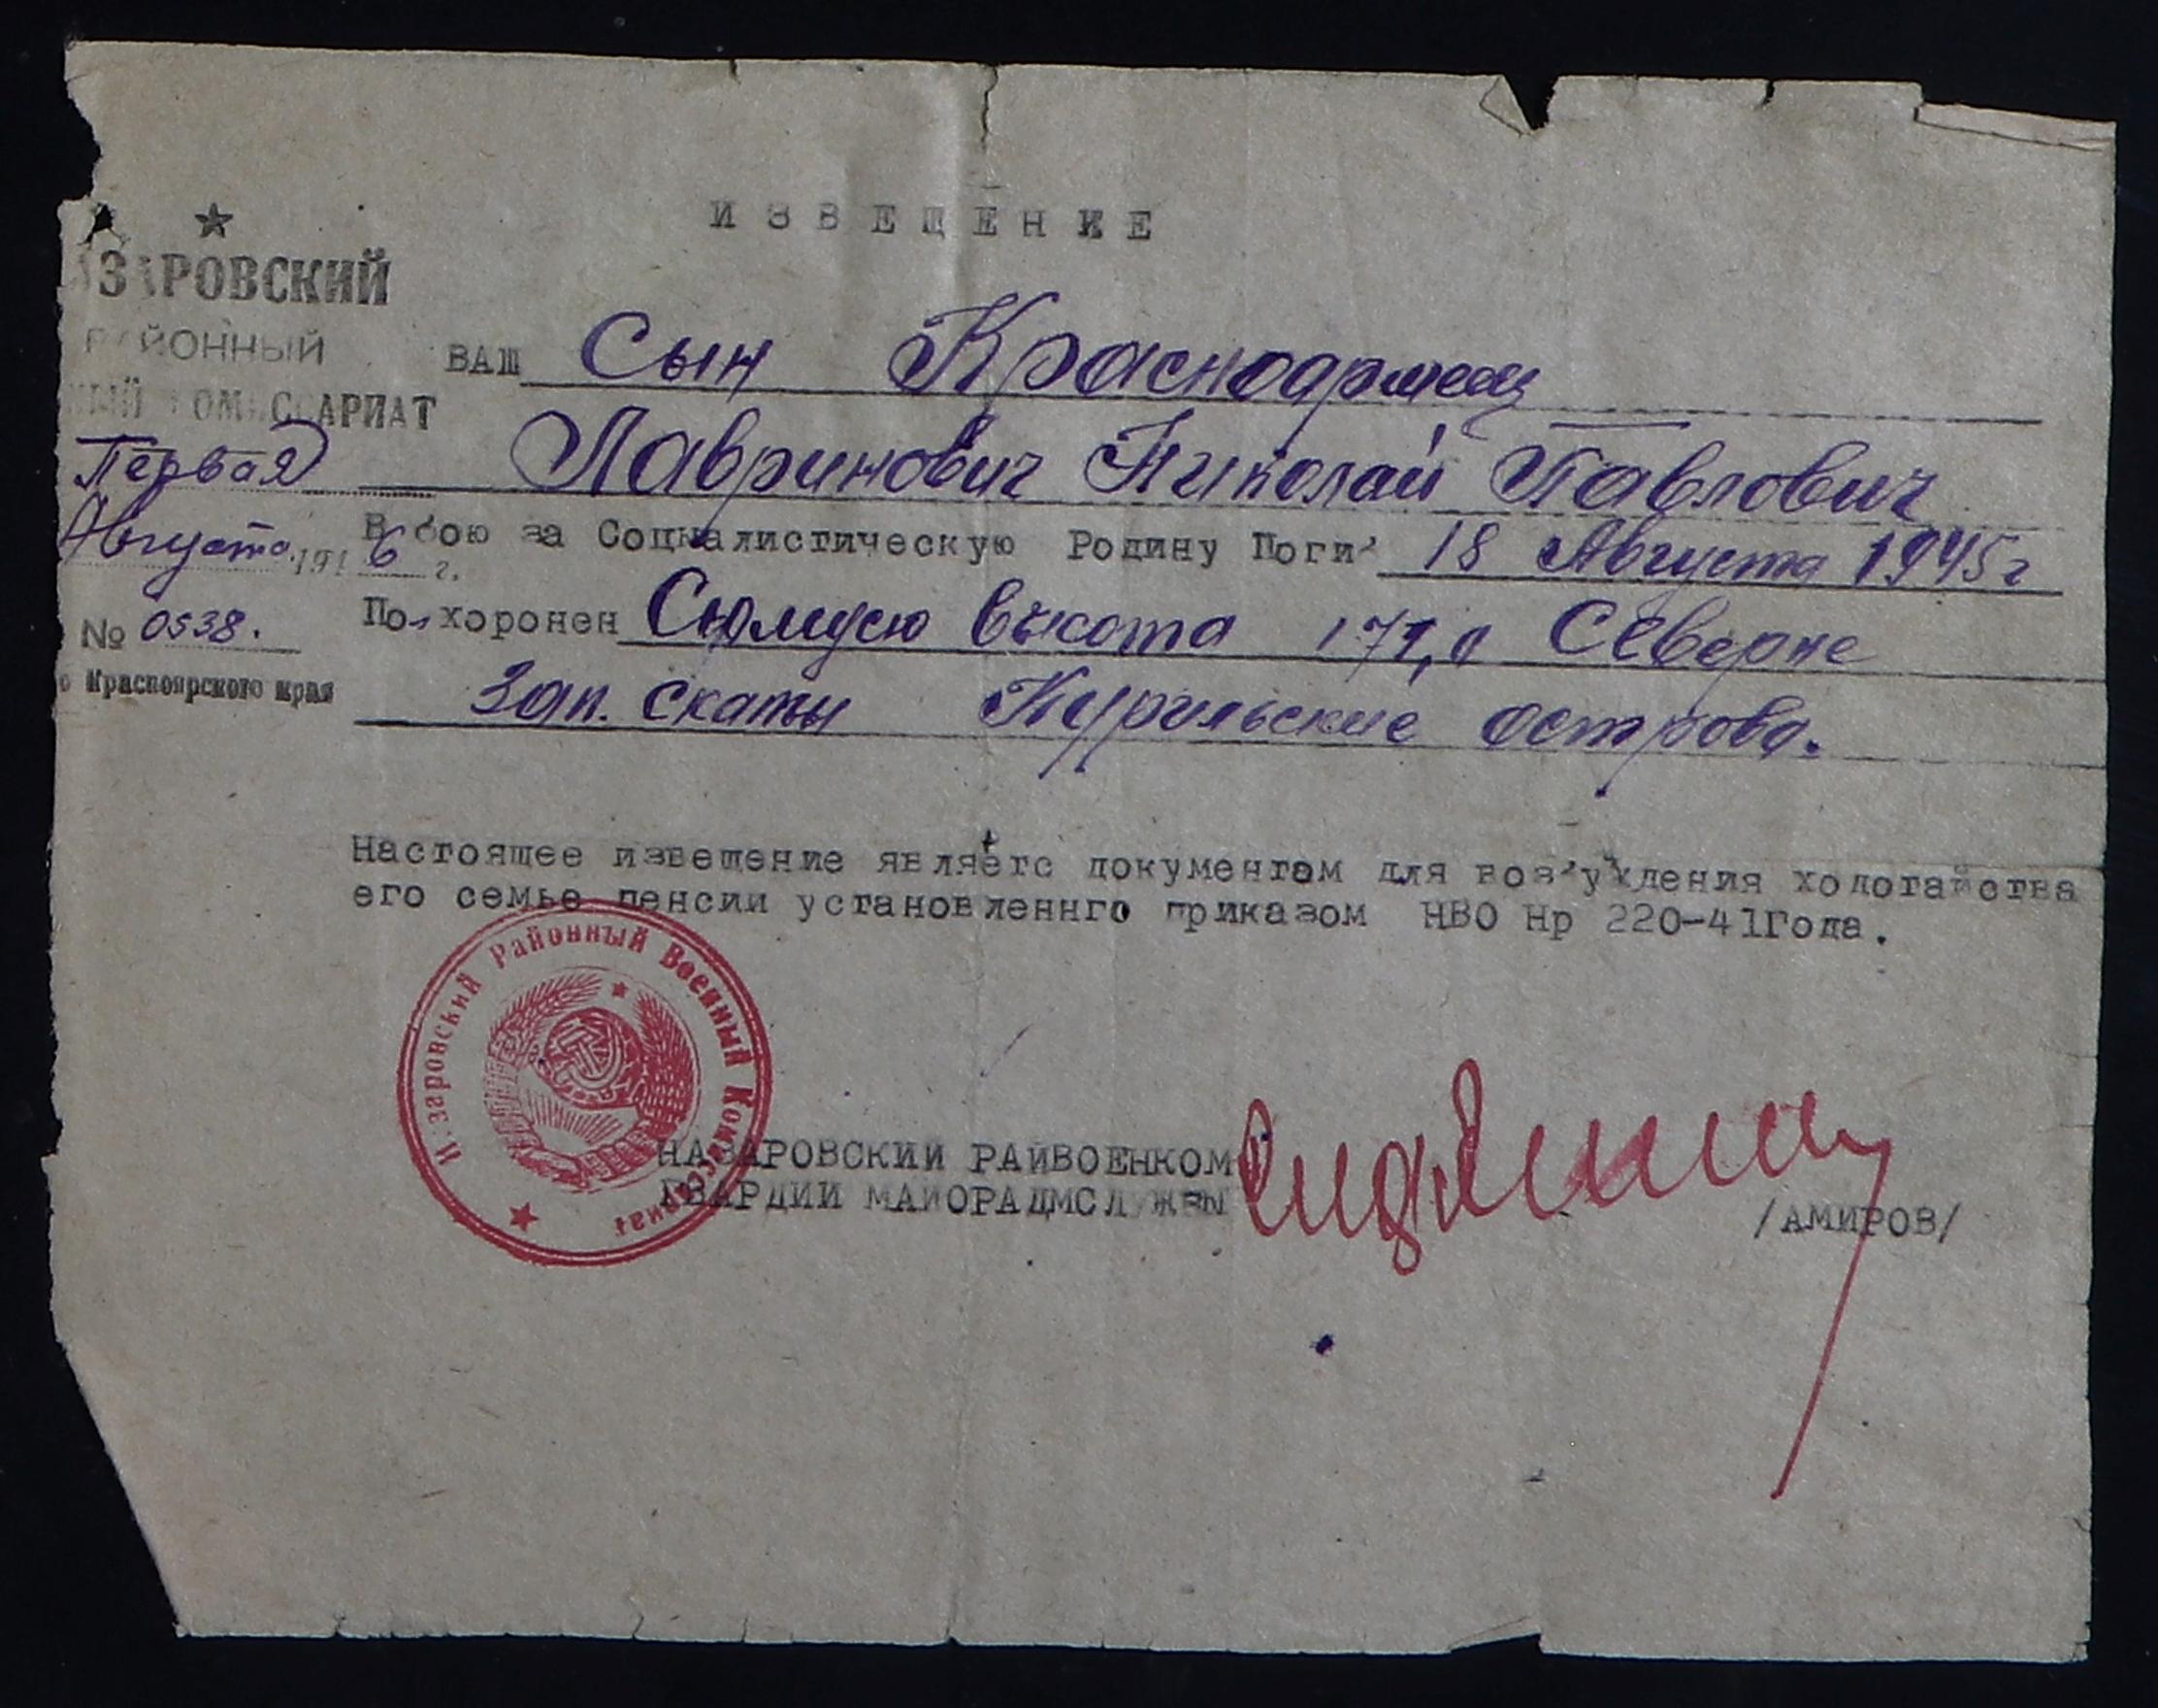 ИЗВЕЩЕНИЕ
ЗАРОВСКИЙ
РАЙОННЫЙ
КОМИССАРИАТ
Первая
Августа 1946 г.
№ 0538.
Красноярского края
ВАШ Сын Красноармеец
Лавринович Николай Павлович
В бою за Социалистическую Родину Погиб 18 Августа 1945г
Похоронен Сюмусю высота 171,0 Северне
Зап. скаты Курильские острова.
Настоящее извещение являетс документам для возбуждения ходотайства
его семье пенсии установленнго приказом НВО Нр 220-41Года.
Назаровский Районный Военный Комиссариат
НАЗАРОВСКИЙ РАЙВОЕНКОМ
ГВАРДИИ МАЙОРАДМСЛУЖБЫ
/АМИРОВ/